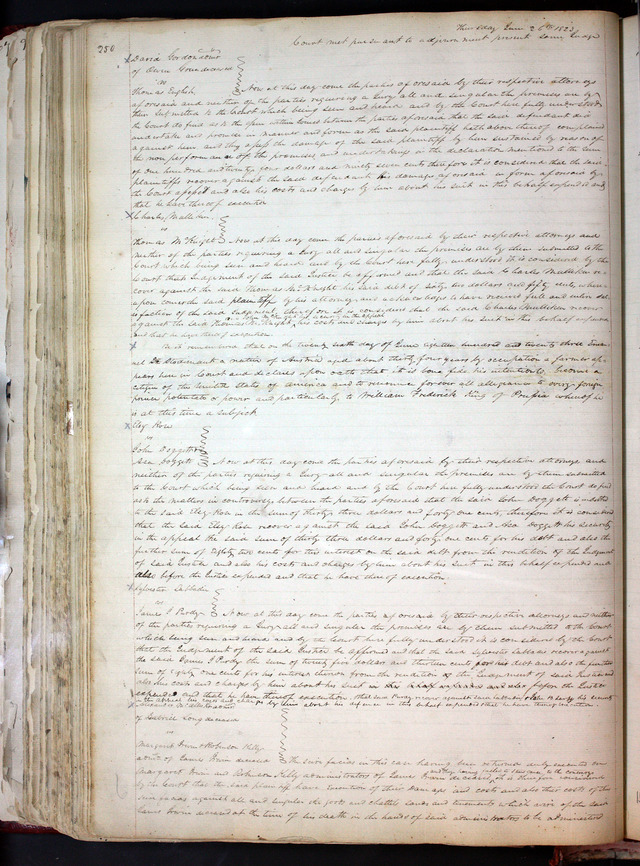 250
Thursday June 26th 1823
Court met pursuant to adjournment present same Judge
David Gordon
of Owen
vs
Thomas English
Now at this day come the parties aforesaid by their respective attorneys
aforesaid and neither of the parties requiring a Jury all and singular the premises are by
them Submitted to the Court which being seen and heard and by the Court here fully understood
the Court do find as to the issue within Joined between the parties aforesaid that the said defendant did
undertake and promise in manner and form as the said plaintiff hath above thereof complained
against him and they assess the damage of the said plaintiff by him sustained by reason of
the non performance of the promises and undertakings in the declaration mentioned to the sum
of one hundred and twenty four dollars and ninety seven cents therefore it is considered that the said
plaintiff recover against the said defendant his damages aforesaid in form aforesaid by
the Court assessed and also his costs and charges by him about his suit in this behalf expended and
that he have thereof execution
Charles Mulliken
vs
Thomas McKnight Now at this day come the parties aforesaid by their respective attorneys and
neither of the parties requiring a Jury all and singular the premises are by them submitted to the
Court which being seen and heard and by the Court here fully understood It is considered by the
Court that Judgment of the said Justice be affirmed and that the said Charles Mulliken re
cover against the said Thomas McKnight his said debt of sixty six dollars and fifty cents, where
upon comes the said plaintiff by his attorney and acknowledges to have received full and entire sat
isfaction of the said Judgment, therefore it is considered that the said Charles Mulliken recover
against the said Thomas McKnight, his costs and charges by him about his suit in this behalf expended
and that he have thereof execution
Be it remembered that on the twenty sixth day of June eighteen hundred and twenty three
a native of Austria aged about thirty four years by occupation a farmer ap
pears here in Court and declares upon oath that it is bona fide his intention to become a
citizen of the United States of America and to renounce forever all allegiance to every foreign
power potentate or power and particularly to William Frederick King of Prussia whereof he
is at this time a subject
Eley Rose
vs
John Doggett
Asa Doggett Now at this day come the parties aforesaid by their respective attorneys and
neither of the parties requiring a Jury all and singular the premises are by them submitted
to the Court which being seen and heard and by the Court here fully understood the Court do find
as to the matters in controversy between the parties aforesaid that the said John Doggett is indebted
to the said Eley Rose in the sum of thirty three dollars and forty one cents, therefore it is considered
that the said Eley Rose recover against the said John Doggett and Asa Doggett his security
in the appeal the said sum of thirty three dollars and forty one cents for his debt and also the
further sum of Eighty two cents for this interest on the said debt from the rendition of the Judgment
of said Justice and also his costs and charges by him about his suit in this behalf expended and
also before the Justice expended and that he have thereof execution
Sylvester
vs
James J Purdy Now at this day come the parties aforesaid by their respective attorneys and neither
of the parties requiring a Jury all and singular the premises are by them submitted to the Court
which being seen and heard and by the Court here fully understood it is considered by the Court
that the Judgment of the said Justice be affirmed and that the said Sylvester recover against
the said James J Purdy the sum of twenty five dollars and thirteen cents for his debt and also the further
sum of Eighty one cents for his interest thereon from the rendition of the Judgment of said Justice and
also his costs and charges by him about his suit in this behalf expended and also before the Justice
expended and that he have thereof execution
vs
Margaret Irwin & Robinson Kelly
admrs of James Irwin deceased The scire facias in this case having been returned duly executed on
Margaret Irwin and Robinson Kelly administrators of James Irwin deceased, it is therefore considered
by the Court that the said plaintiff have execution of their damages and costs and also their costs of this
scire facias against all and singular the goods and chattels lands and tenements which were of the said
James Irwin deceased at the time of his death in the hands of said administrators to be administered